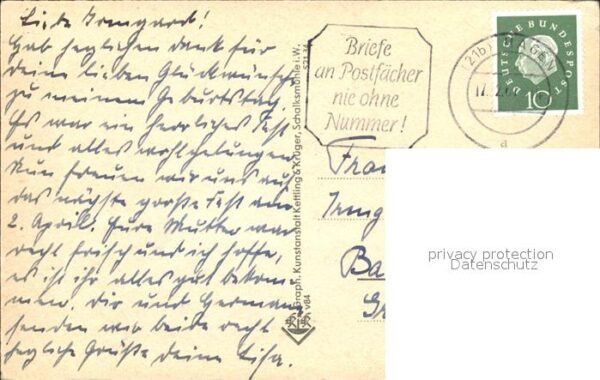 Liebe Irmgard!
Hab herzlichen Dank für
deine lieben Glückwünsche
zu meinem Geburtstag.
Es war ein herrliches Fest
und alles wohlgelungen.
Nun freuen wir uns auf
das nächste große Fest am
2. April. Eure Mutter war
recht frisch und ich hoffe,
es ist ihr alles gut bekom-
men. Dir und Hermann
senden wir beide recht
herzliche Grüße deine Lisa.
Graph. Kunstanstalt Kettling & Krüger, Schalksmühle i. W.
Briefe
an Postfächer
nie ohne
Nummer!
(21b) HAGEN
d
DEUTSCHE BUNDESPOST
10
Frau
Irmg
Ba
privacy protection
Datenschutz